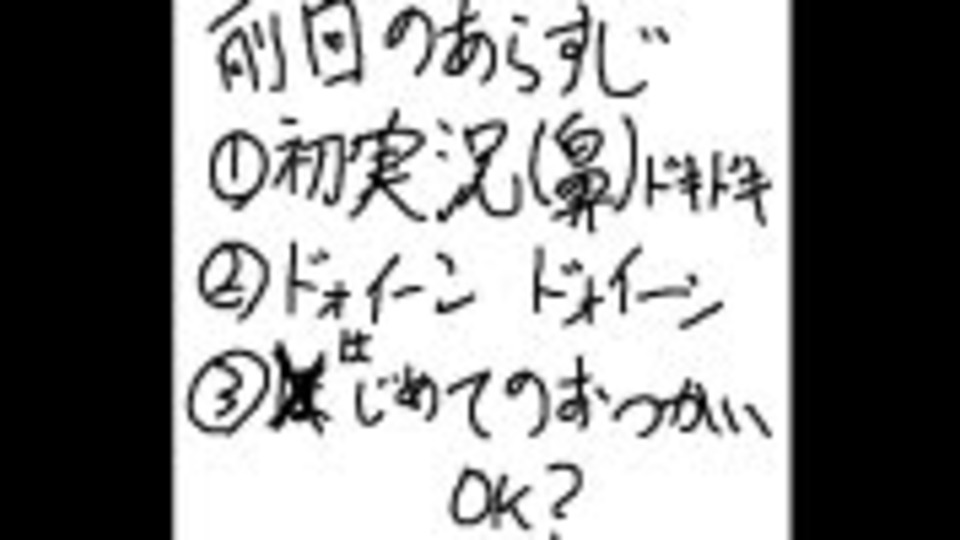 前回のあらすじ
①初実況(鼻)ドキドキ
②ドォイーン ドォイーン
③はじめてのおつかい
OK?